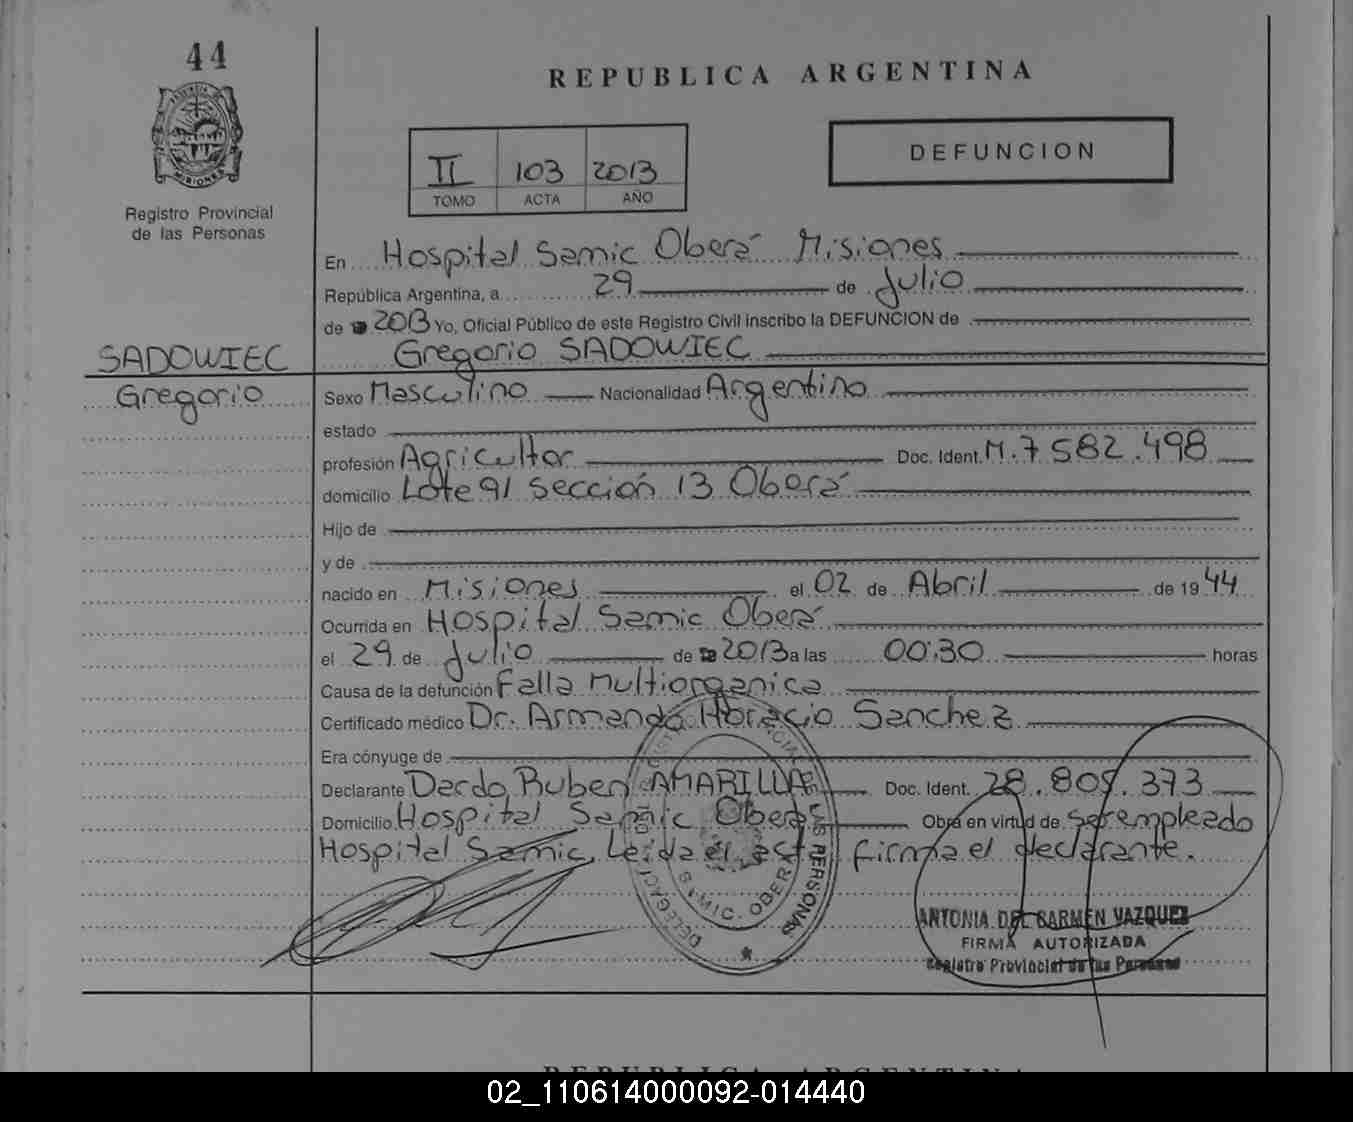 44
REPUBLICA ARGENTINA
DEFUNCION
II 103 2013
TOMO ACTA AÑO
Registro Provincial
de las Personas
En Hospital Samic Oberá Misiones
República Argentina, a 29 de Julio
de 2013 Yo, Oficial Público de este Registro Civil inscribo la DEFUNCION de
SADOWIEC Gregorio SADOWIEC
Gregorio Sexo Masculino Nacionalidad Argentino
estado
profesión Agricultor Doc. Ident. M.7582.498
domicilio Lote 91 Sección 13 Oberá
Hijo de
y de
nacido en Misiones el 02 de Abril de 1944
Ocurrida en Hospital Samic Oberá
el 29 de Julio de 2013 a las 00:30 horas
Causa de la defunción Falla Multiorganica
Certificado médico Dr. Armando Horacio Sanchez
Era cónyuge de
Declarante Dardo Ruben AMARILLA Doc. Ident. 28.805.373
Domicilio Hospital Samic Oberá Obra en virtud de ser empleado
Hospital Samic. Leida el acta firma el declarante.
DELEGACI LAS PERSONAS
SAMIC. OBERA
ANTONIA DEL CARMEN VAZQUEZ
FIRMA AUTORIZADA
Registro Provincial de las Personas
REPUBLICA ARGENTINA
02_110614000092-014440